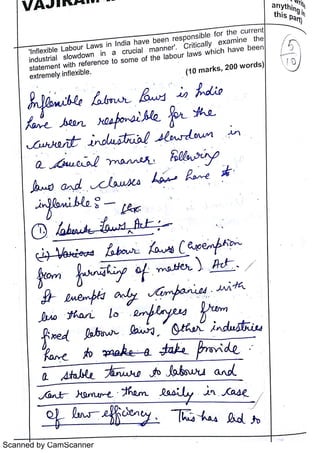 VAJIRAM
anything in
this part)
'Inflexible Labour Laws in India have been responsible for the current
industrial slowdown in a crucial manner'. Critically examine the
statement with reference to some of the labour laws which have been
extremely inflexible.
(10 marks, 200 words)
5
10
Inflexible Labour Laws in India
have been responsible for the
current industrial slowdown in
a crucial manner. Following
laws and clauses have
inflexible :-
1. Labour Laws Act :-
(i) Various Labour Laws (Exemption
from furnishing of matter) Act.
It exempts only companies with
less than 10 employees from
fixed labour laws. Other industries
have to make a take provide
a stable tenure to labours and
cant remove them easily in case
of low efficiency. This has led to
Scanned by CamScanner